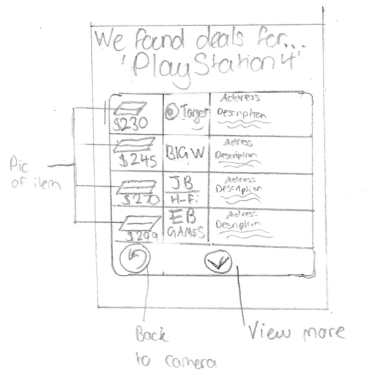 We found deals for...
'PlayStation 4'
$230
Target
Address
Description
$245
BIG W
Adress
Description
$270
JB
H-Fi
Adress
Description
$299
EB
GAMES
Adress
Description
Pic
of item
Back
to camera
View more